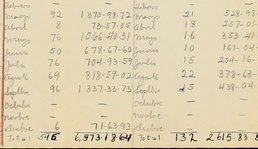 Febrero — — Febrero — —
Marzo 92 1370-98-72 Marzo 21 528-98-
Abril 8 73-57-05 Abril 18 257-01-
Mayo 76 1066-40-31 Mayo 16 353-41-
Junio 50 678-67-60 Junio 10 161-04-
Julio 76 704-93-59 Julio 15 204-16-
Agosto 69 818-59-02 Agosto 22 378-63-
Septbre 96 1337-33-73 Septbre 438-04-
Octubre — — Octubre — —
Novbre — — Novbre — —
Dicbre 6 71-63-93 Dicbre — —
Total 6,973 18 64 Total 132 2615-83-8